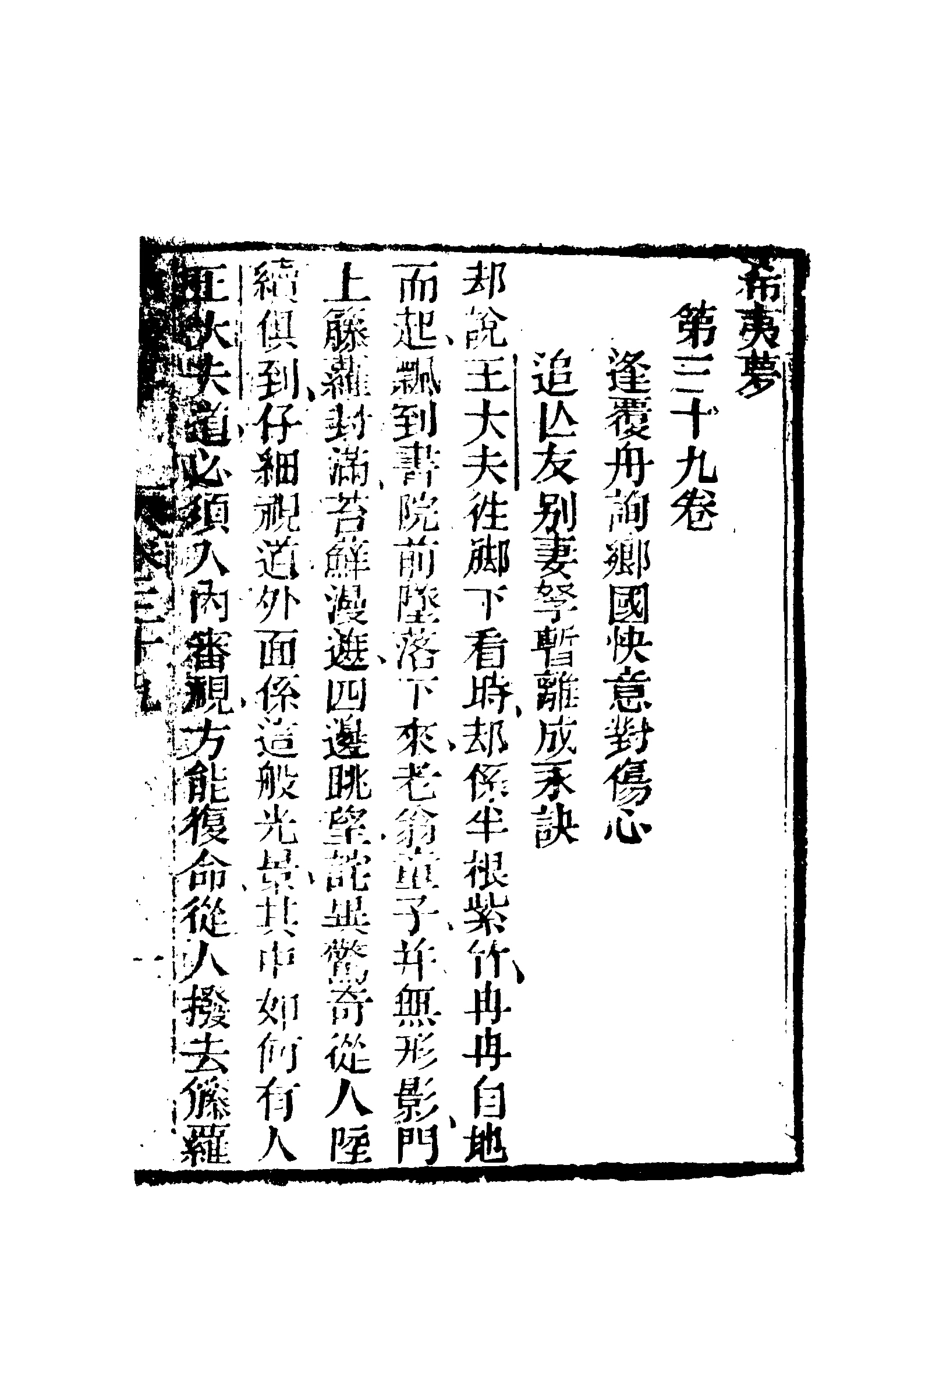 希夷夢
第三十九卷
逢覆舟詢鄉國快意對傷心
追亾友別妻孥暫離成永訣
却說王大夫徃腳下看時却係半根紫竹冉冉自地
而起飄到書院前墜落下來老翁童子并無形影門
上籐蘿封滿苔蘚漫遮四邊眺望詫異驚奇從人陸
續俱到仔細視道外面係這般光景其中如何有人
王大夫道必須入內審視方能復命從人撥去籐蘿
卷三十九
一